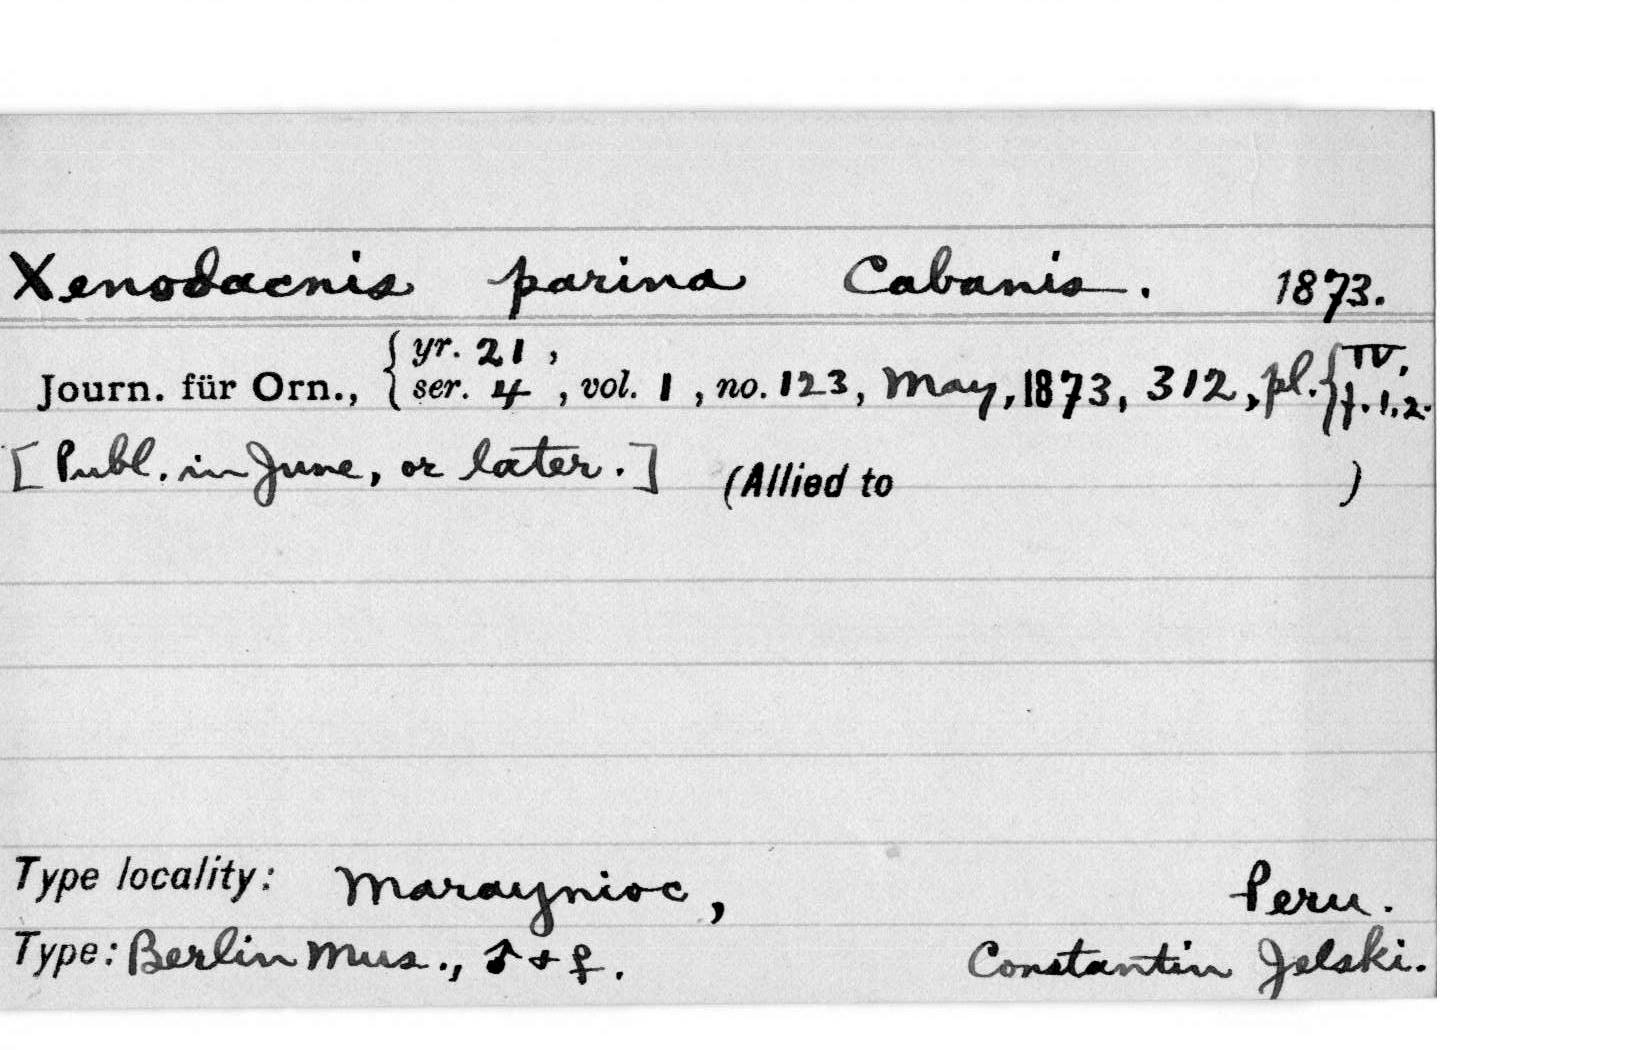 Xenodacnis parina Cabanis. 1873.
Journ. für Orn., { yr. 21 , ser. 4 , vol. 1 , no. 123, May, 1873, 312, pl. { IV, f. 1, 2.
[Publ. in June, or later.] (Allied to )
Type locality: Maraynioc, Peru.
Type: Berlin Mus., ♂ + ♀. Constantin Jelski.